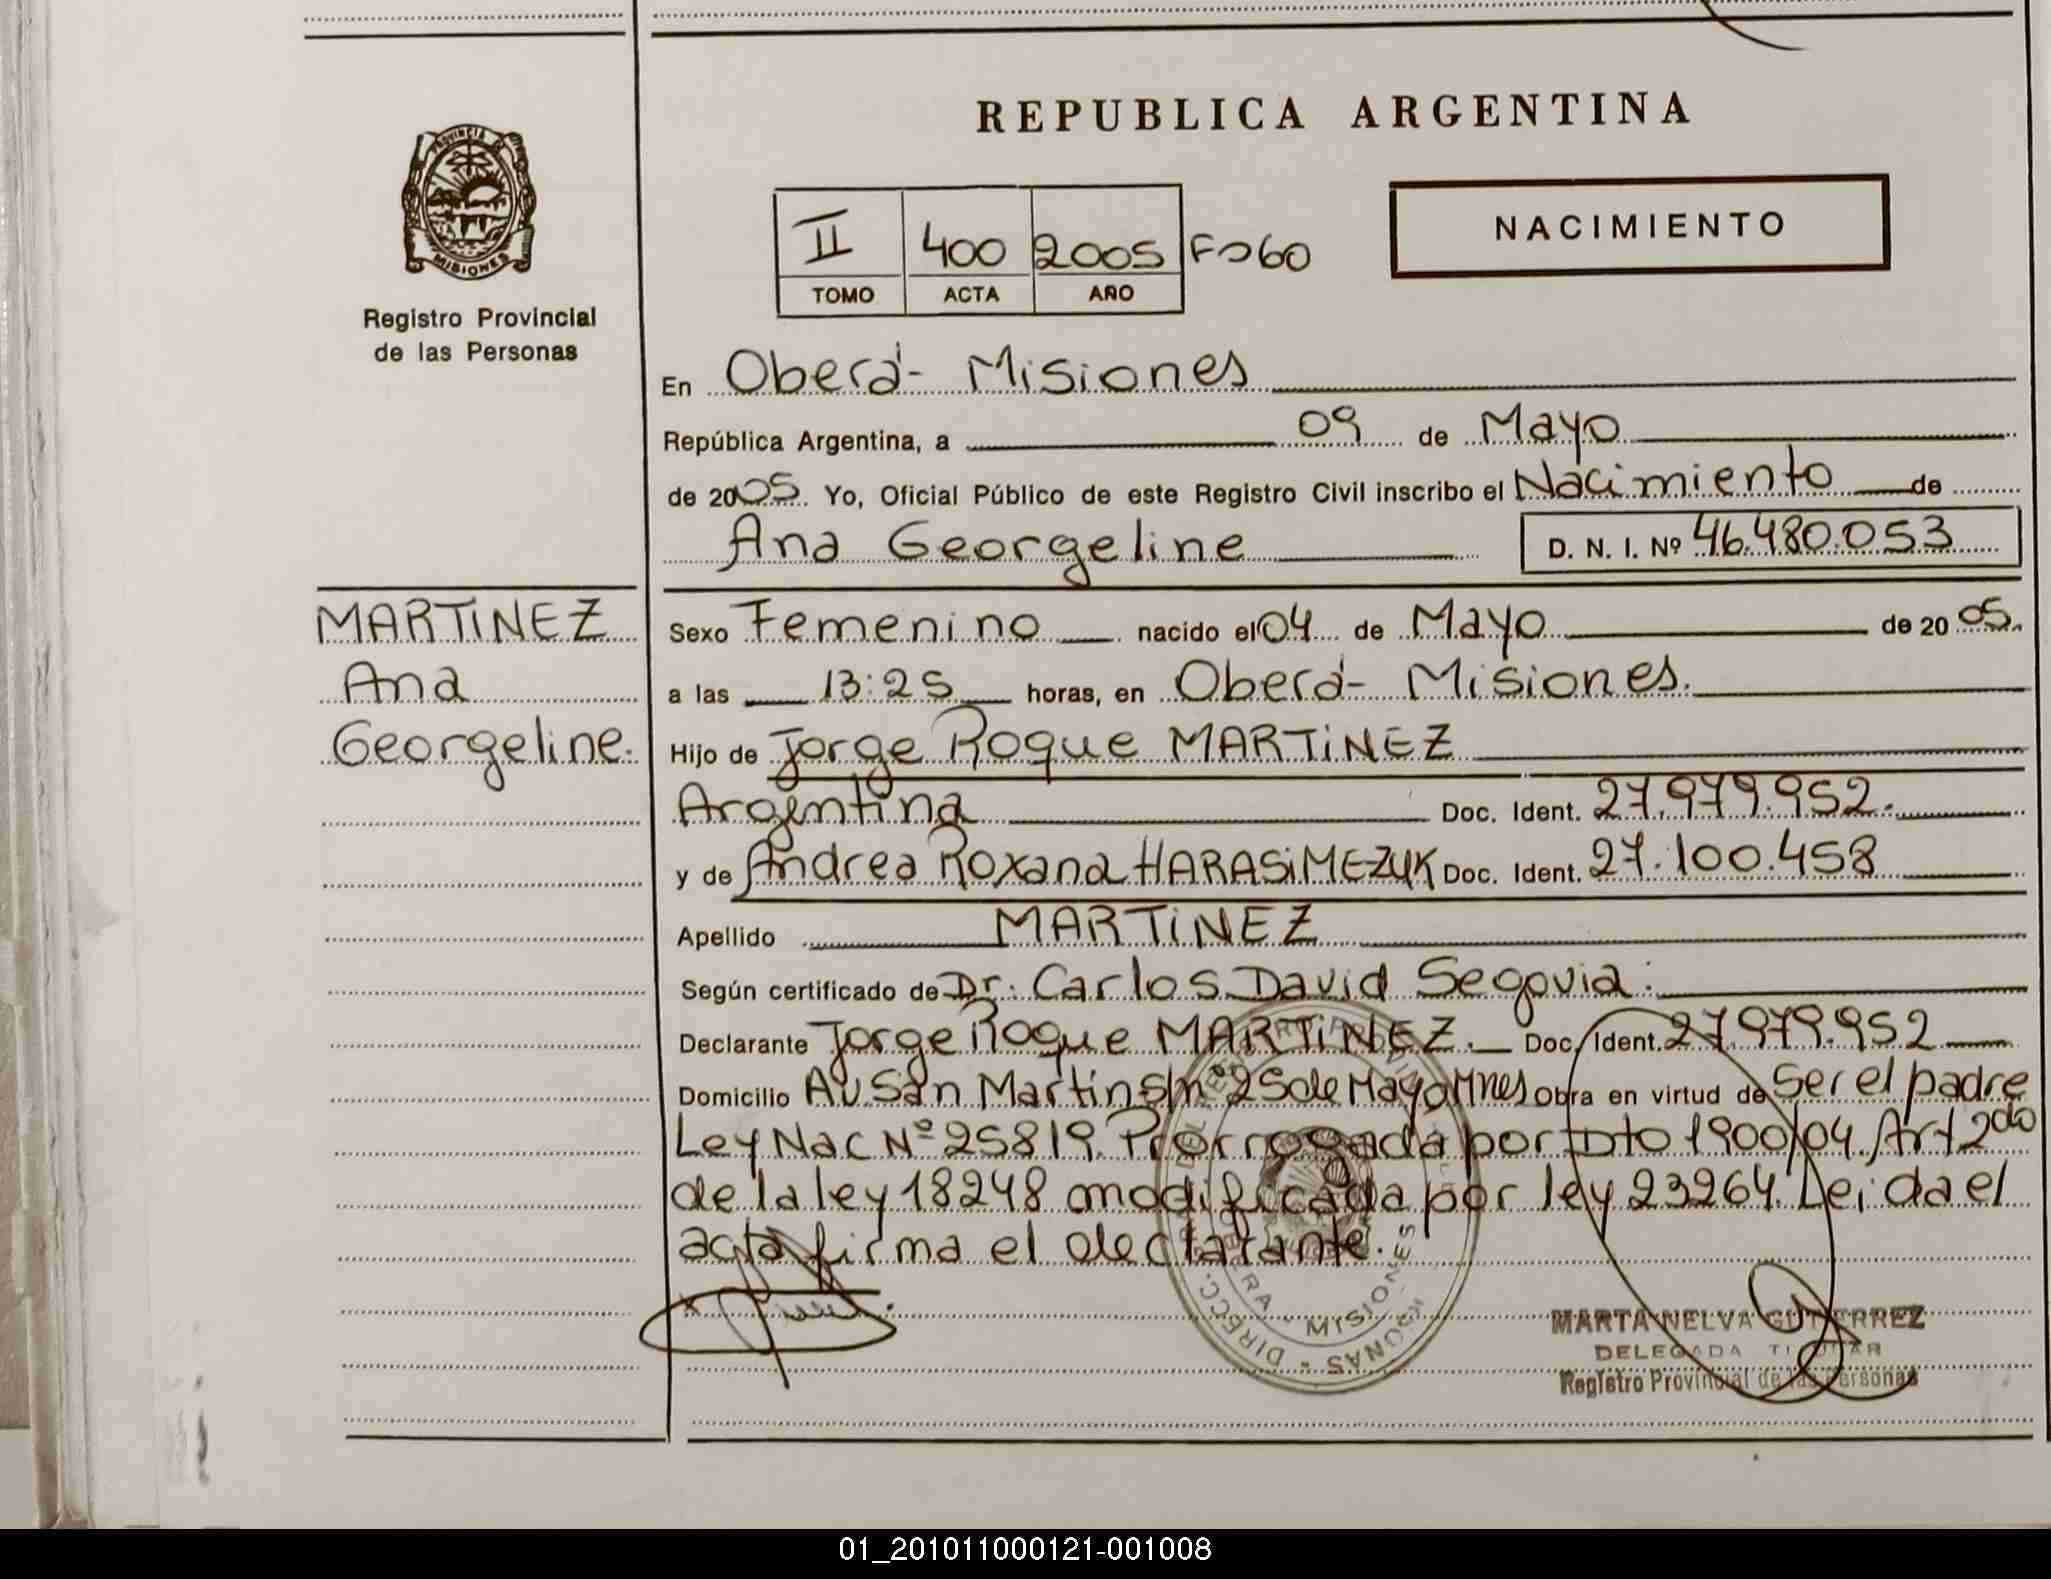 REPUBLICA ARGENTINA
PROVINCIA DE
MISIONES
Registro Provincial
de las Personas
II 400 2005 Fº 60
TOMO ACTA AÑO
NACIMIENTO
En Oberá - Misiones
República Argentina, a 09 de Mayo
de 2005. Yo, Oficial Público de este Registro Civil inscribo el Nacimiento de
Ana Georgeline D. N. I. Nº 46.480.053
MARTINEZ
Ana
Georgeline.
Sexo Femenino nacido el 04 de Mayo de 2005.
a las 13:25 horas, en Oberá - Misiones.
Hijo de Jorge Roque MARTINEZ
Argentina Doc. Ident. 27.979.952.
y de Andrea Roxana HARASIMEZUK Doc. Ident. 27.100.458
Apellido MARTINEZ
Según certificado de Dr. Carlos David Segovia.
Declarante Jorge Roque MARTINEZ. Doc. Ident. 27.979.952
Domicilio Av. San Martin s/nº 25 de Mayo Mnes Obra en virtud de Ser el padre
Ley Nac Nº 25819. Prorrogada por Dto 1900/04. Art 2do
de la ley 18248 modificada por ley 23264. Leida el
acta firma el declarante.
MISIONES
MARTA NELVA GUTIERREZ
DELEGADA TITULAR
Registro Provincial de las Personas
01_201011000121-001008